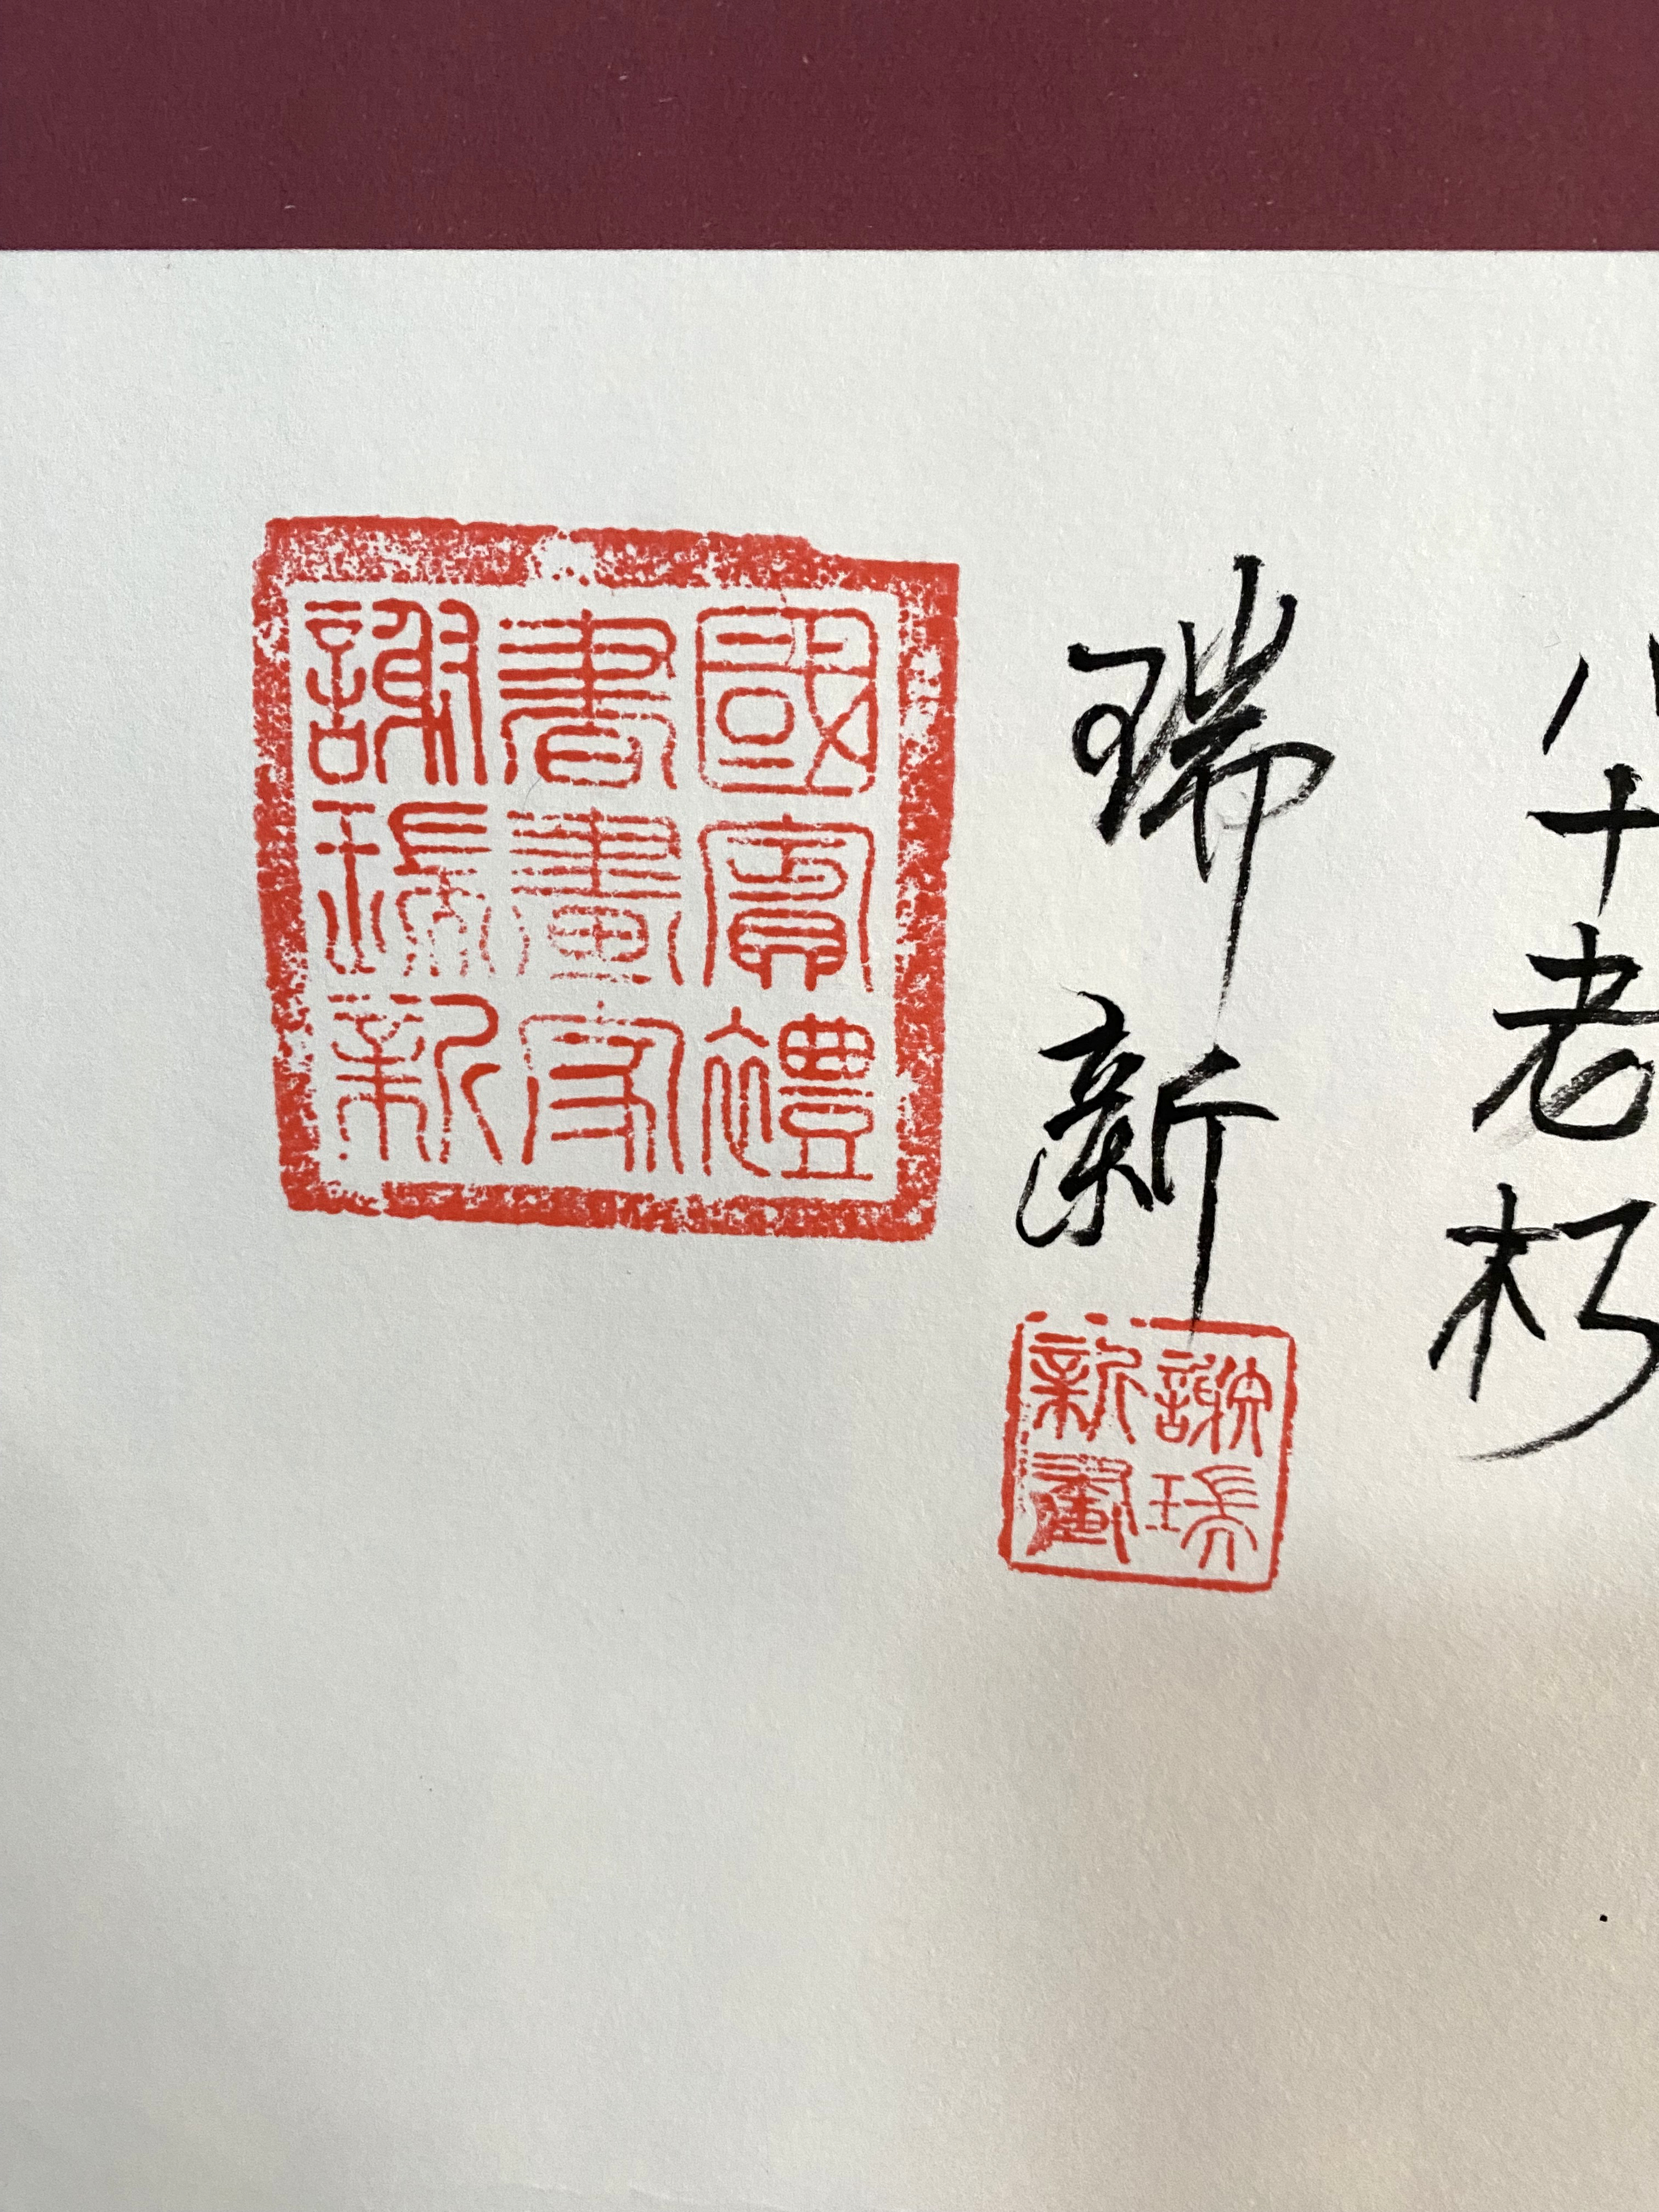 八十老朽
瑞新
謝瑞新畫
國賓禮
書畫家
謝瑞新